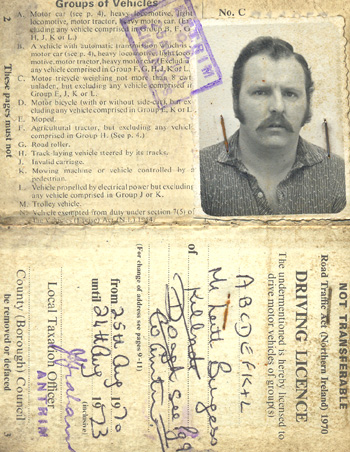 Groups of Vehicles
No. C
A. Motor car (see p. 4), heavy locomotive, light
locomotive, motor tractor, heavy motor car. (Ex-
cluding any vehicle comprised in Group B, E, G,
H, J, K or L.)
B. A vehicle with automatic transmission
motor car (see p. 4), heavy locomotive, light loco-
motive, motor tractor, heavy motor car (Excluding
any vehicle comprised in Group F, G, H, J, K or L.
C. Motor tricycle weighing not more than 8 cwt.
unladen, but excluding any vehicle comprised in
Group E, J, K or L.
D. Motor bicycle (with or without side-car), but ex-
cluding any vehicle comprised in Group E, K or L.
E. Moped.
F. Agricultural tractor, but excluding any vehicle
comprised in Group H. (See p. 4.)
G. Road roller.
H. Track laying vehicle steered by its tracks.
J. Invalid carriage.
K. Mowing machine or vehicle controlled by a
pedestrian.
L. Vehicle propelled by electrical power but excluding
any vehicle comprised in Group J or K.
M. Trolley vehicle.
N. Vehicle exempted from duty under section 7(5) of
2
These pages must not
ANTRIM
NOT TRANSFERABLE
Road Traffic Act (Northern Ireland) 1970
DRIVING LICENCE
The undermentioned is hereby licensed to
drive motor vehicles of group(s)
Mr Keith Burgess
of
(For change of address see pages 9-11)
from 25th Aug 1970
until 24th Aug 1973
(inclusive)
Local Taxation Officer
ANTRIM
County (Borough) Council
be removed or defaced
3